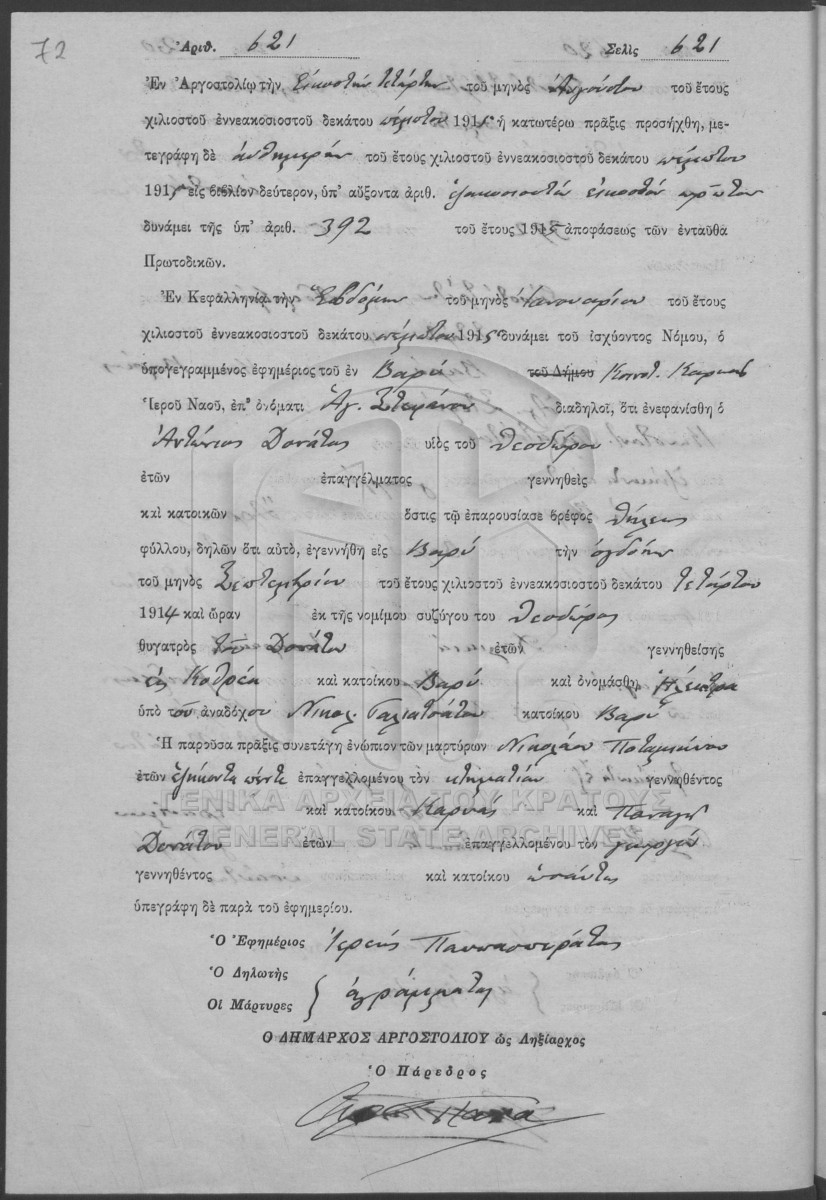 72
Ἀριθ. 621 Σελὶς 621
Ἐν Ἀργοστολίῳ τὴν Εἰκοστὴν τετάρτην τοῦ μηνὸς Αὐγούστου τοῦ ἔτους
χιλιοστοῦ ἐννεακοσιοστοῦ δεκάτου πέμπτου 1915 ἡ κατωτέρω πρᾶξις προσήχθη, με-
τεγράφη δὲ αὐθημερὸν τοῦ ἔτους χιλιοστοῦ ἐννεακοσιοστοῦ δεκάτου πέμπτου
1915 εἰς βιβλίον δεύτερον, ὑπ' αὔξοντα ἀριθ. ἑξακοσιοστὸν εἰκοστὸν πρῶτον
δυνάμει τῆς ὑπ' ἀριθ. 392 τοῦ ἔτους 1915 ἀποφάσεως τῶν ἐνταῦθα
Πρωτοδικῶν.
Ἐν Κεφαλληνίᾳ τὴν Ἑβδόμην τοῦ μηνὸς Ἰανουαρίου τοῦ ἔτους
χιλιοστοῦ ἐννεακοσιοστοῦ δεκάτου πέμπτου 1915 δυνάμει τοῦ ἰσχύοντος Νόμου, ὁ
ὑπογεγραμμένος ἐφημέριος τοῦ ἐν Βαρύ τοῦ Δήμου Κοινοτ. Καρυᾶς
Ἱεροῦ Ναοῦ, ἐπ' ὀνόματι Ἁγ. Στεφάνου διαδηλοῖ, ὅτι ἐνεφανίσθη ὁ
Ἀντώνιος Δονάτος υἱὸς τοῦ Θεοδώρου
ἐτῶν ἐπαγγέλματος γεννηθεὶς
καὶ κατοικῶν ὅστις τῷ ἐπαρουσίασε βρέφος θήλεως
φύλλου, δηλῶν ὅτι αὐτὸ, ἐγεννήθη εἰς Βαρύ τὴν ὀγδόην
τοῦ μηνὸς Σεπτεμβρίου τοῦ ἔτους χιλιοστοῦ ἐννεακοσιοστοῦ δεκάτου τετάρτου
1914 καὶ ὥραν ἐκ τῆς νομίμου συζύγου του Θεοδώρας
θυγατρὸς τοῦ Δονάτου ἐτῶν γεννηθείσης
εἰς Κοθρέα καὶ κατοίκου Βαρύ καὶ ὀνομάσθη Ἠλέκτρα
ὑπὸ τοῦ ἀναδόχου Νικολ. Γαλιατσάτου κατοίκου Βαρύ
Ἡ παροῦσα πρᾶξις συνετάγη ἐνώπιον τῶν μαρτύρων Νικολάου Ποταμιάνου
ἐτῶν ἑξήκοντα πέντε ἐπαγγελλομένου τὸν κτηματίαν γεννηθέντος
καὶ κατοίκου Καρυᾶς καὶ Παναγῆ
Δονάτου ἐτῶν ἐπαγγελλομένου τὸν γεωργόν
γεννηθέντος καὶ κατοίκου ὡσαύτως
ὑπεγράφη δὲ παρὰ τοῦ ἐφημερίου.
Ὁ Ἐφημέριος Ἱερεὺς
Ὁ Δηλωτὴς
Οἱ Μάρτυρες } ἀγράμματοι
Ο ΔΗΜΑΡΧΟΣ ΑΡΓΟΣΤΟΛΙΟΥ ὡς Ληξίαρχος
Ὁ Πάρεδρος
ΓΕΝΙΚΑ ΑΡΧΕΙΑ ΤΟΥ ΚΡΑΤΟΥΣ
GENERAL STATE ARCHIVES